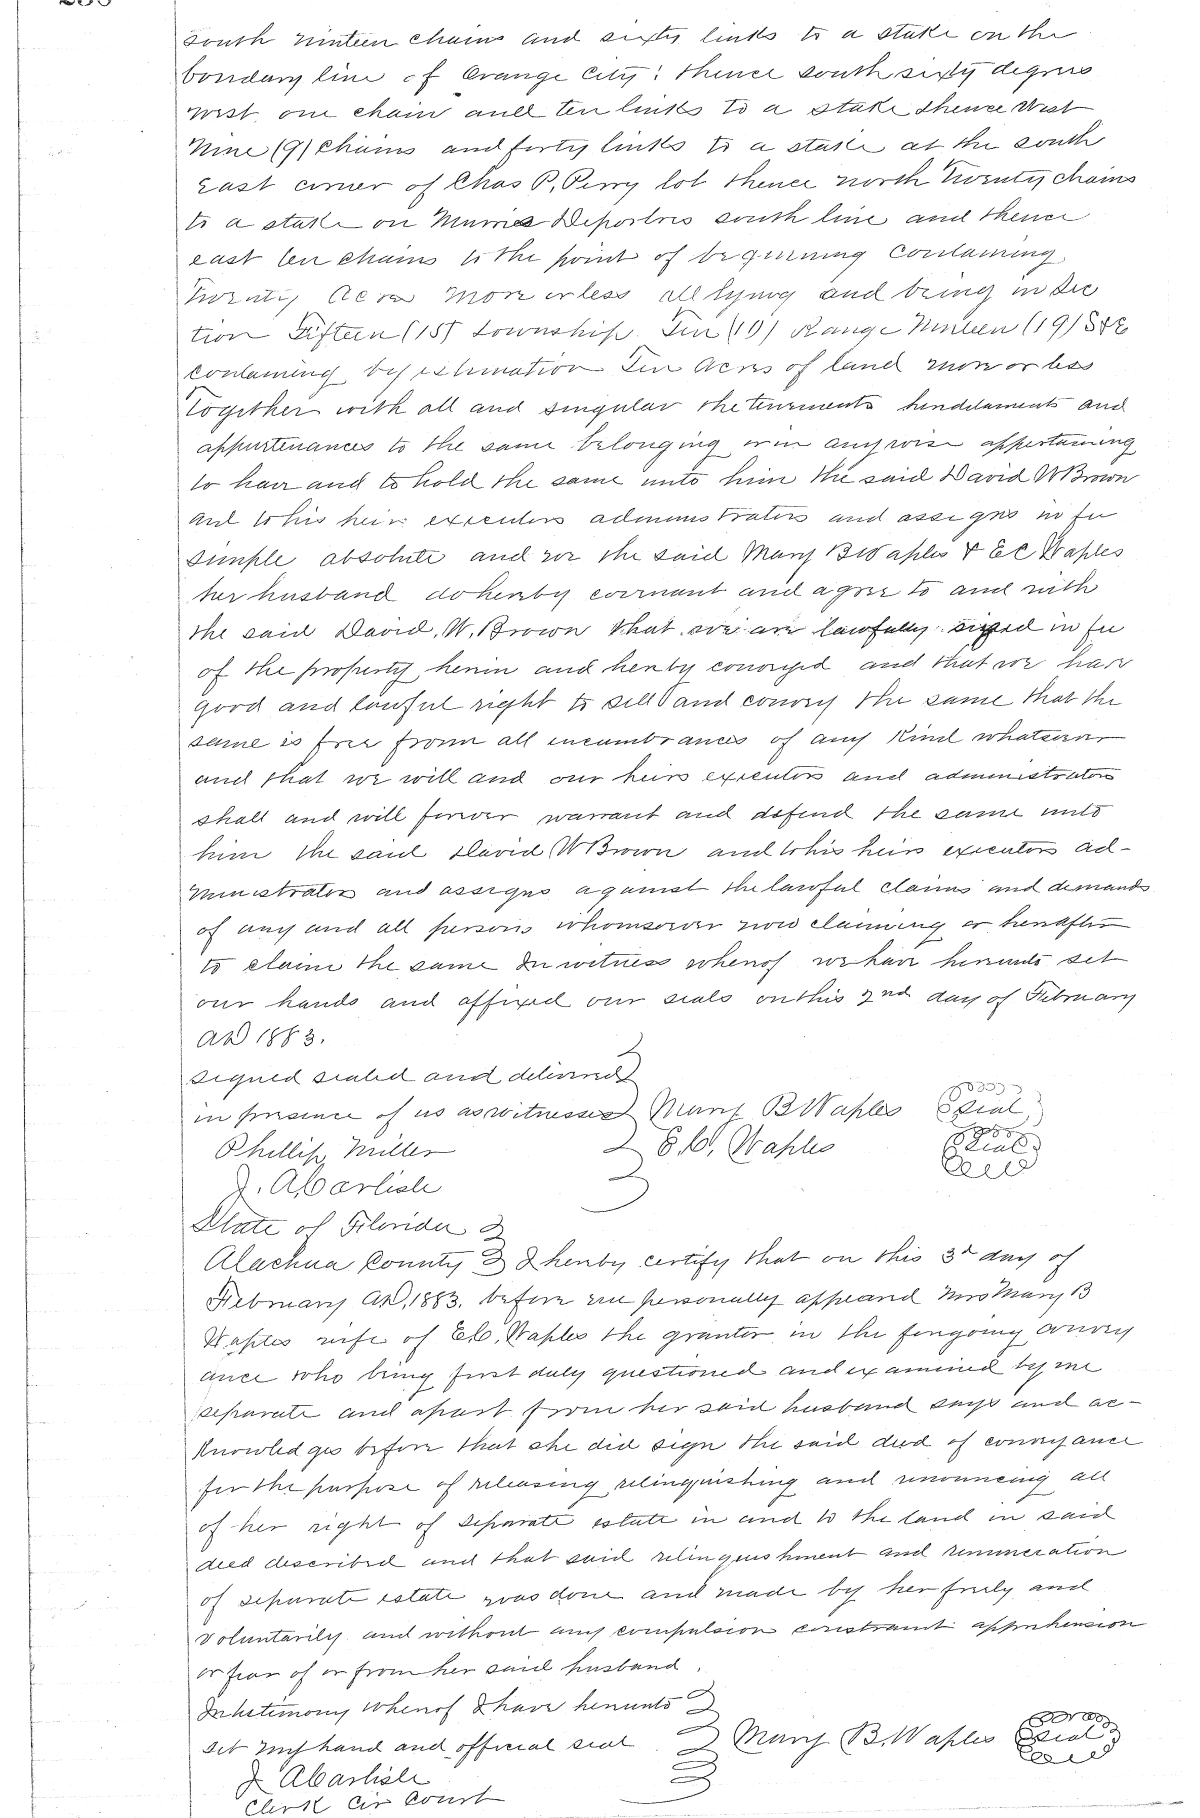 south ninteen chains and sixty links to a stake on the
boundary line of Orange City; thence south sixty degrees
west one chain and ten links to a stake thence West
Nine (9) Chains and forty links to a stake at the south
East corner of Chas P. Perry lot thence north Twenty chains
to a stake on south line and thence
east ten chains to the point of beginning containing
Twenty Acres more or less all lying and being in Sec
tion Fifteen (15) Township Ten (10) Range Ninteen (19) S & E
containing by estimation Ten Acres of land more or less
together with all and singular the tenements and
appurtenances to the same belonging or in anywise appertaining
to have and to hold the same unto him the said David W Brown
and to his heirs executors administrators and assigns in fee
simple absolute and we the said Mary B Waples & E C Waples
her husband do hereby covenant and agree to and with
the said David. W. Brown that we are lawfully in fee
of the property herein and hereby conveyed and that we have
good and lawful right to sell and convey the same that the
same is free from all encumbrances of any Kind whatsoever
and that we will and our heirs executors and administrators
shall and will forever warrant and defend the same unto
him the said David W Brown and to his heirs executors ad-
ministrators and assigns against the lawful claims and demands
of any and all persons whomsoever now claiming or hereafter
to claim the same In witness whereof we have hereunto set
our hands and affixed our seals on this 2nd day of February
AD 1883.
signed sealed and delivered
in presence of us as witnesses Mary B Waples Seal
Phillip Miller E. C. Waples Seal
J. A Carlisle
State of Florida
Alachua County I hereby certify that on this 3d day of
February AD, 1883. before me personally appeared Mrs Mary B
Waples wife of E C. Waples the grantor in the foregoing convey
ance who being first duly questioned and examined by me
separate and apart from her said husband says and ac-
knowledges before that she did sign the said deed of conveyance
for the purpose of releasing relinquishing and renouncing all
of her right of separate estate in and to the land in said
deed described and that said relinquishment and renunceration
of separate estate was done and made by her freely and
voluntarily and without any compulsion constraint apprehension
or fear of or from her said husband.
In testimony whereof I have hereunto
set my hand and official seal Mary B. Waples Seal
J A Carlisle
Clerk Cir Court